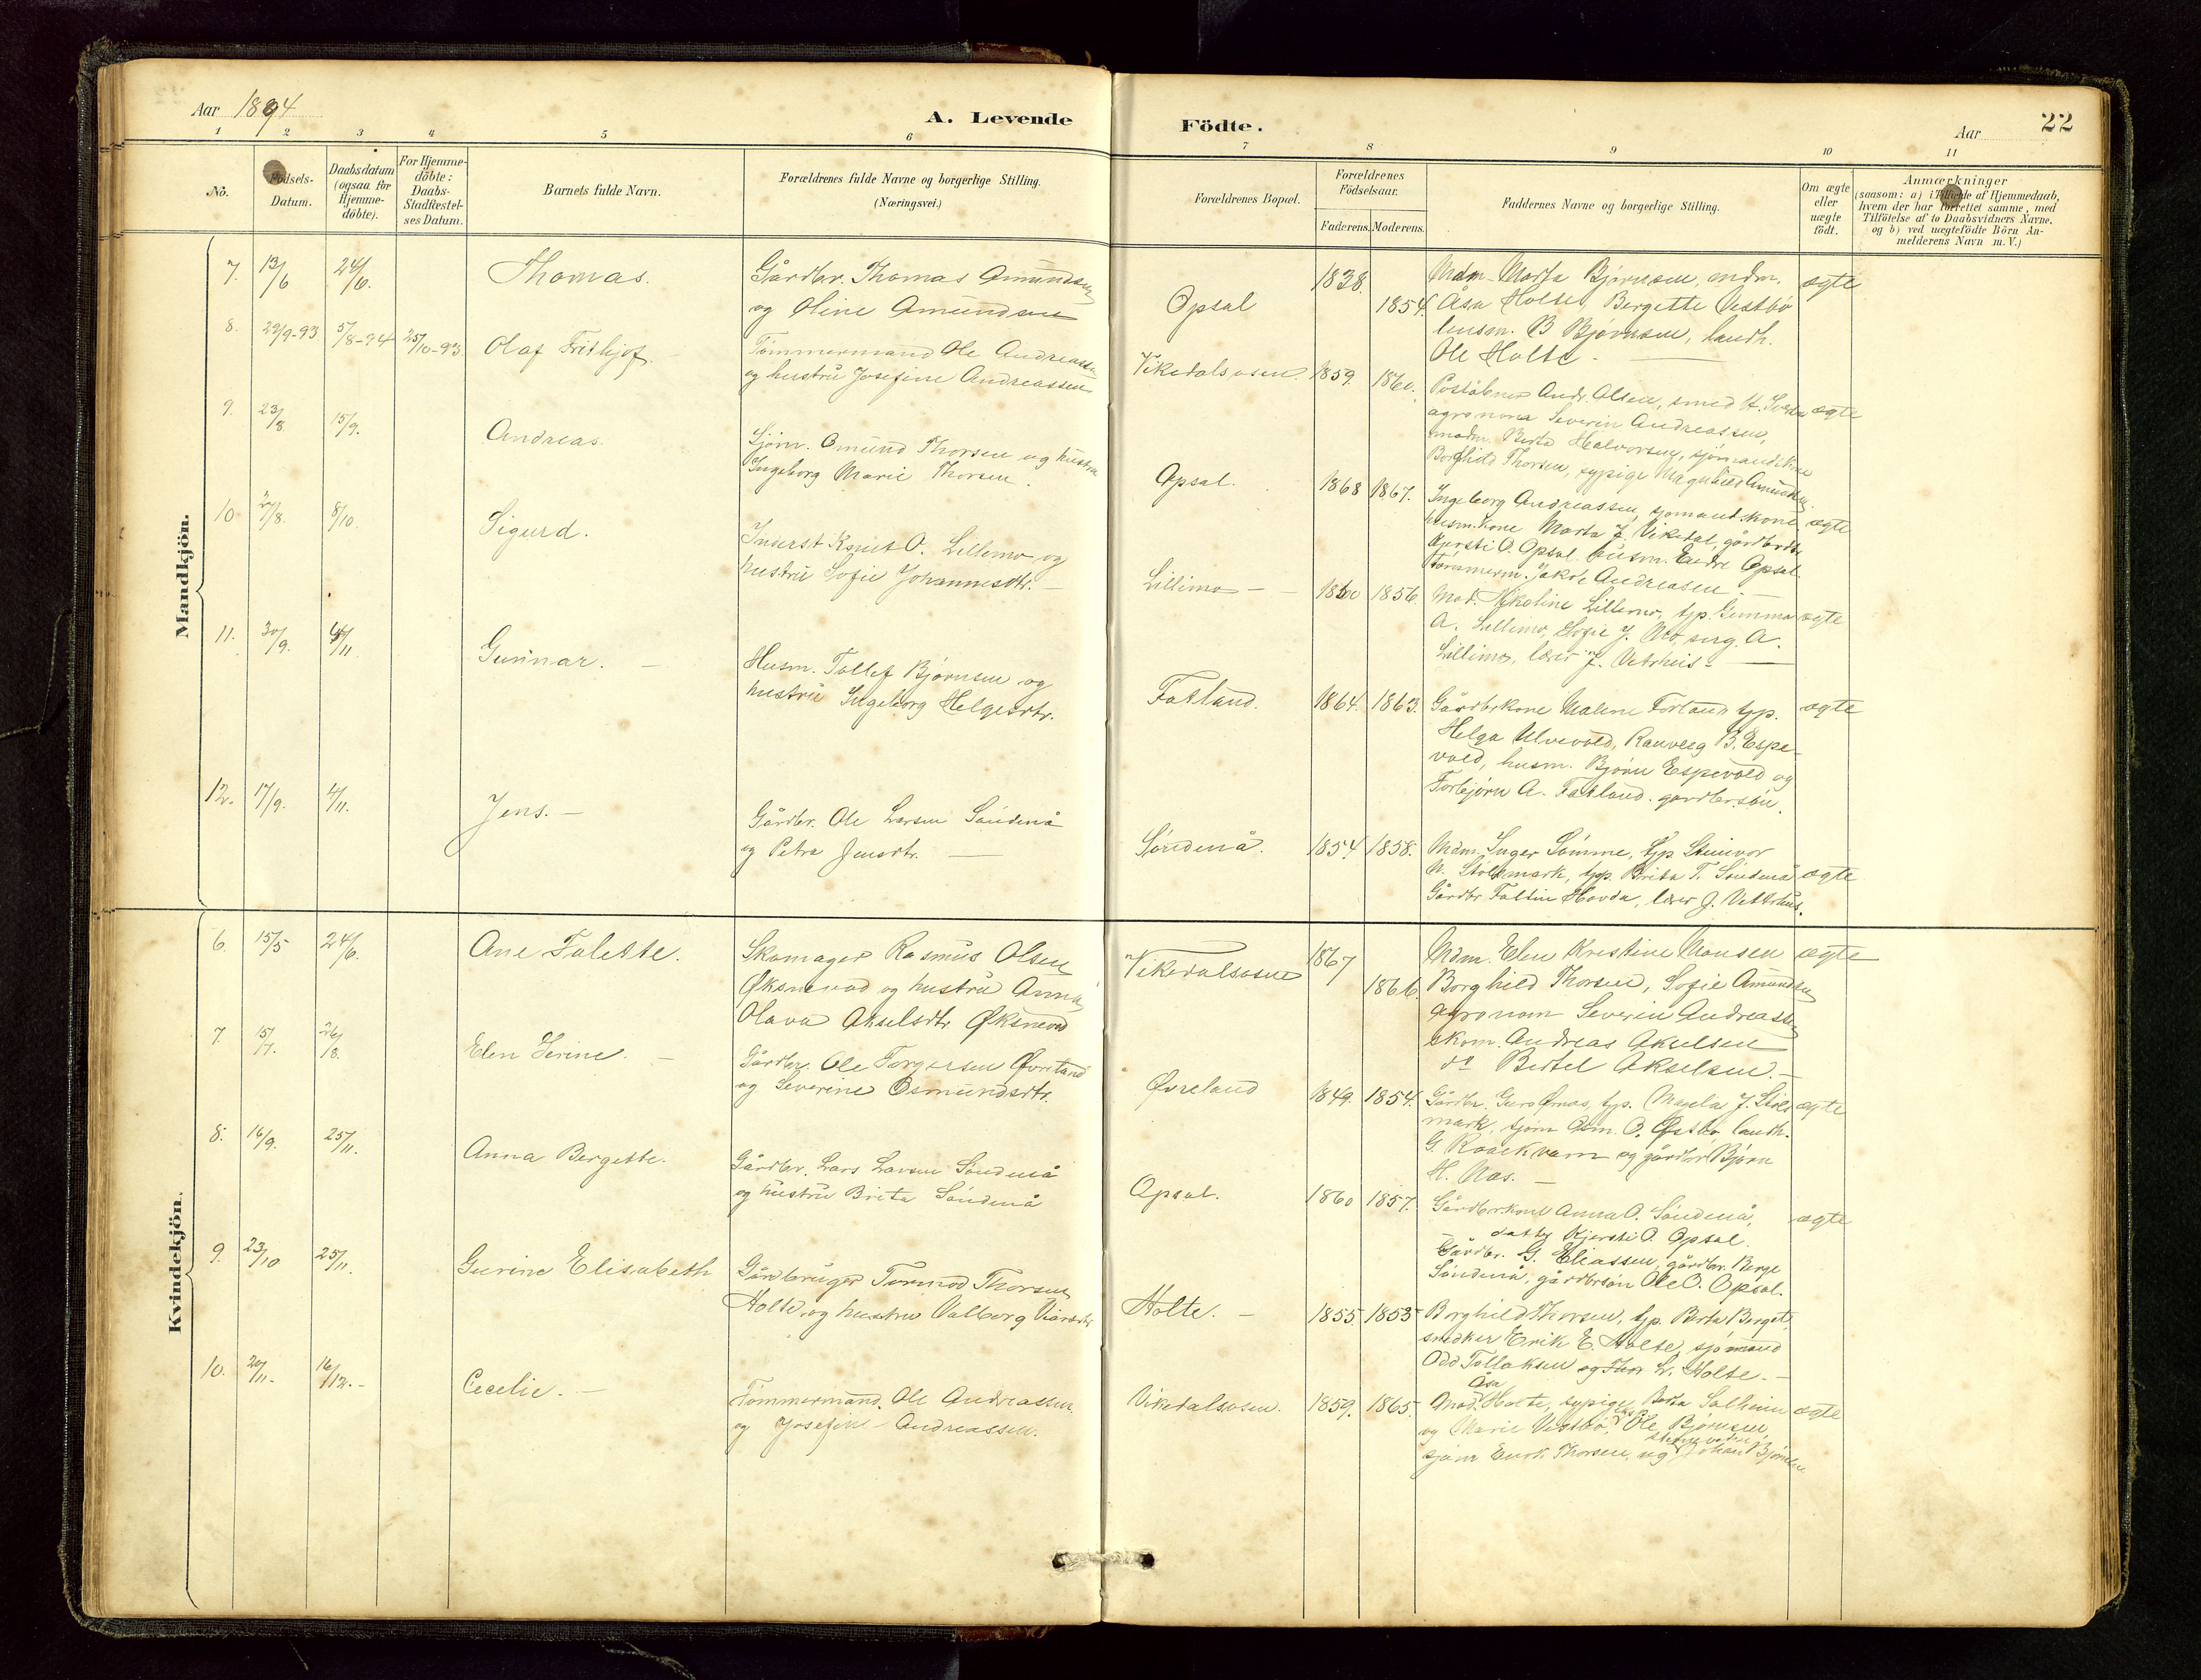 Aar 1894
A. Levende
Födte.
Aar
22
1 2 3 4 5 6 7 8 9 10 11
No.
Födsels-
Datum.
Daabsdatum
(ogsaa for
Hjemme-
döbte).
For Hjemme-
döbte:
Daabs-
Stadfæstel-
ses Datum.
Barnets fulde Navn.
Forældrenes fulde Navne og borgerlige Stilling.
(Næringsvei.)
Forældrenes Bopæl.
Forældrenes
Födselsaar.
Faderens. Moderens.
Faddernes Navne og borgerlige Stilling.
Om ægte
eller
uægte
födt.
Anmærkninger
(saasom: a) i Tilfælde af Hjemmedaab,
hvem der har forrettet samme, med
Tilföielse af to Daabsvidners Navne.
og b) ved uægtefödte Börn An-
melderens Navn m. V.)
Mandkjön.
7. 13/6 24/6. Thomas.
Gårdbr. Thomas Amundsen
og Oline Amundsen
Opsal 1838. 1854.
Mdm. Marta Bjørnsen, mdm.
Åsa Holte, Bergette Vestbø
lensm. B Bjørnsen, landh.
Ole Holte.
ægte
8. 29/9-93 5/8-94 25/10-93 Olaf Frithjof.
Tømmermand Ole Andreassen
og hustru Josefine Andreassen
Vikedalsosen. 1859. 1860.
Poståbner Andr. Olsen, smed
agronom Severin Andreassen,
madm. Berta Halvorsen, sjømandskone
Borghild Thorsen, sypige Magnhild Amundsen
ægte
9. 23/8 15/9. Andreas.
Sjøm. Omund Thorsen og hustru
Ingeborg Marie Thorsen.
Opsal. 1868 1867.
Ingeborg Andreassen, sjømandskone
husm.kone Marta J. Vikedal, gårdbrdtr.
Kjersti O. Opsal husm. Endre Opsal.
tømmerm. Jakob Andreasen.
ægte
10 27/8. 8/10. Sigurd.
Inderst Knut O. Lillemo og
hustru Sofie Johannesdtr.
Lillimo 1856.
Mad. Nikoline Lillemo, typ. Gemma
A. Lillimo, Sofie J. Mo, serg. A.
Lillimo, lærer J. Vetrhus.
ægte
11. 30/9. 4/11 Gunnar.
Husm. Tollef Bjørnsen og
hustru Ingeborg Helgesdtr.
Fatland. 1864. 1863.
Gårdbrkone Malene Fatland typ.
Helga Ulvevold, Ranveig B. Espe-
vold, husm. Bjørn Espevold og
Torbjørn A. Fatland. gardbr.søn.
ægte
12. 17/9. 4/11. Jens.
Gårdbr. Ole Larsen Søndenå
og Petra Jensdtr.
Søndenå. 1854 1858.
Mdm. Inger Sømme, typ Steinvor
N. Stølsmark, typ. Brita T. Søndenå
Gårdbr Faltin Hovda, lærer J. Vetrhus.
ægte
Kvindekjön.
6. 15/5 24/6. Ane Talette.
Skomager Rasmus Olsen
Øksnevad og hustru Anna
Olava Akselsdtr. Øksnevad
Vikedalsosen 1867 1866.
Mdm. Elen Kristine Monsen
Borghild Thorsen, Sofie Amundsen
agronom Severin Andreassen
skom. Andreas Akselsen
do Bertel Akselsen.
ægte
7. 15/7. 26/8. Elen Serine.
Gårdbr. Ole Torgersen Øvreland
og Severine Osmundsdtr.
Øvreland 1849. 1854.
Gårdbr. Guro Ørnas, typ. Magela J. Støls
mark, sjøm Osm. O. Østbø, landh.
G. Raaekvam og gårdbr Bjørn
H. Nas.
ægte
8. 16/9. 25/11. Anna Bergette.
Gårdbr. Lars Larsen Søndenå
og hustru Brita Søndenå
Opsal. 1860 1857.
Gårdbr.kone Anna O. Søndenå,
datter Kjersti O. Opsal.
Gårdbr. G. Eliassen, gårdbr. Berge
Søndenå, gårdbrsøn Ole O. Opsal.
ægte
9. 23/10 25/11. Gurine Elisabeth
Gårdbruger Tormod Thorsen
Holte og hustru Valborg
Holte. 1855. 1853
Borghild Thorsen, typ. Berta Berget,
snedker Erik E. Holte, sjømand
Odd Tollaksen og Thor L. Holte.
10. 20/11. 16/12. Cecelie.
Tømmermand. Ole Andreassen.
og Josefine Andreassen.
Vikedalsosen. 1859. 1865.
Åsa
Mad. Holte, sypige Berta Solheim
og Marie Vestbø, Ole Bjørnsen
sjøm Enok Thorsen, og Johan Bjørnsen
ægte